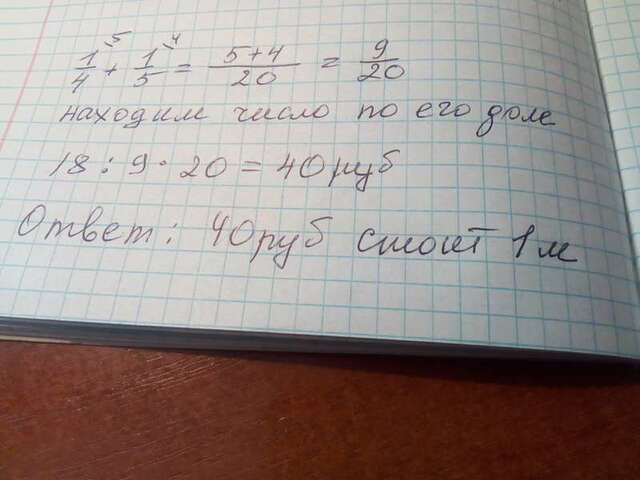 1/4 ⁵ + 1/5 ⁴ = 5+4/20 = 9/20
находим число по его доле
18 : 9 · 20 = 40 руб
Ответ: 40 руб стоит 1 м